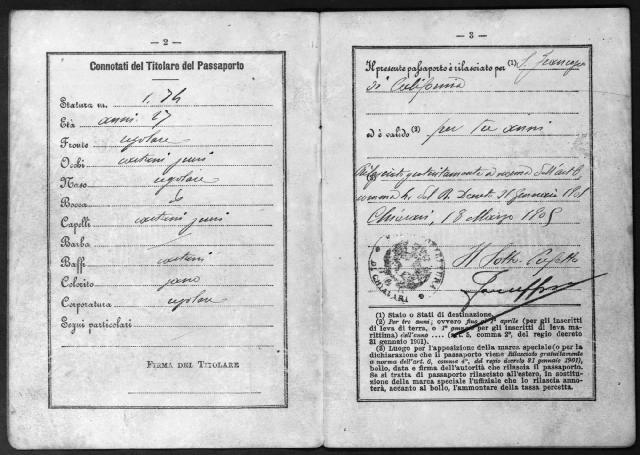 — 2 —
Connotati del Titolare del Passaporto
Statura m. 1.74
Età anni 27
Fronte regolare
Occhi castani
Naso regolare
Bocca
Capelli castani
Barba
Baffi castani
Colorito
Corporatura regolare
Segni particolari
FIRMA DEL TITOLARE
— 3 —
Il presente passaporto è rilasciato per (1) S. Francisco
di California
ed è valido (2) per tre anni
(3) Rilasciato gratuitamente a norma dell'art. 6,
comma 4, del R. Decreto 31 Gennaio 1901
Chiavari, 18 Marzo
Il Sotto Prefetto
DI CHIAVARI
(1) Stato o Stati di destinazione.
(2) Per tre anni; ovvero fino al 1° aprile (per gli inscritti
di leva di terra, o 1° gennaio per gli inscritti di leva ma-
rittima) dell'anno .... (art. 5, comma 2°, del regio decreto
31 gennaio 1901).
(3) Luogo per l'apposizione della marca speciale (o per la
dichiarazione che il passaporto viene Rilasciato gratuitamente
a norma dell'art. 6, comma 4°, del regio decreto 31 gennaio 1901),
bollo, data e firma dell'autorità che rilascia il passaporto.
Se si tratta di passaporto rilasciato all'estero, in sostitu-
zione della marca speciale l'uffiziale che lo rilascia anno-
terà, accanto al bollo, l'ammontare della tassa percetta.